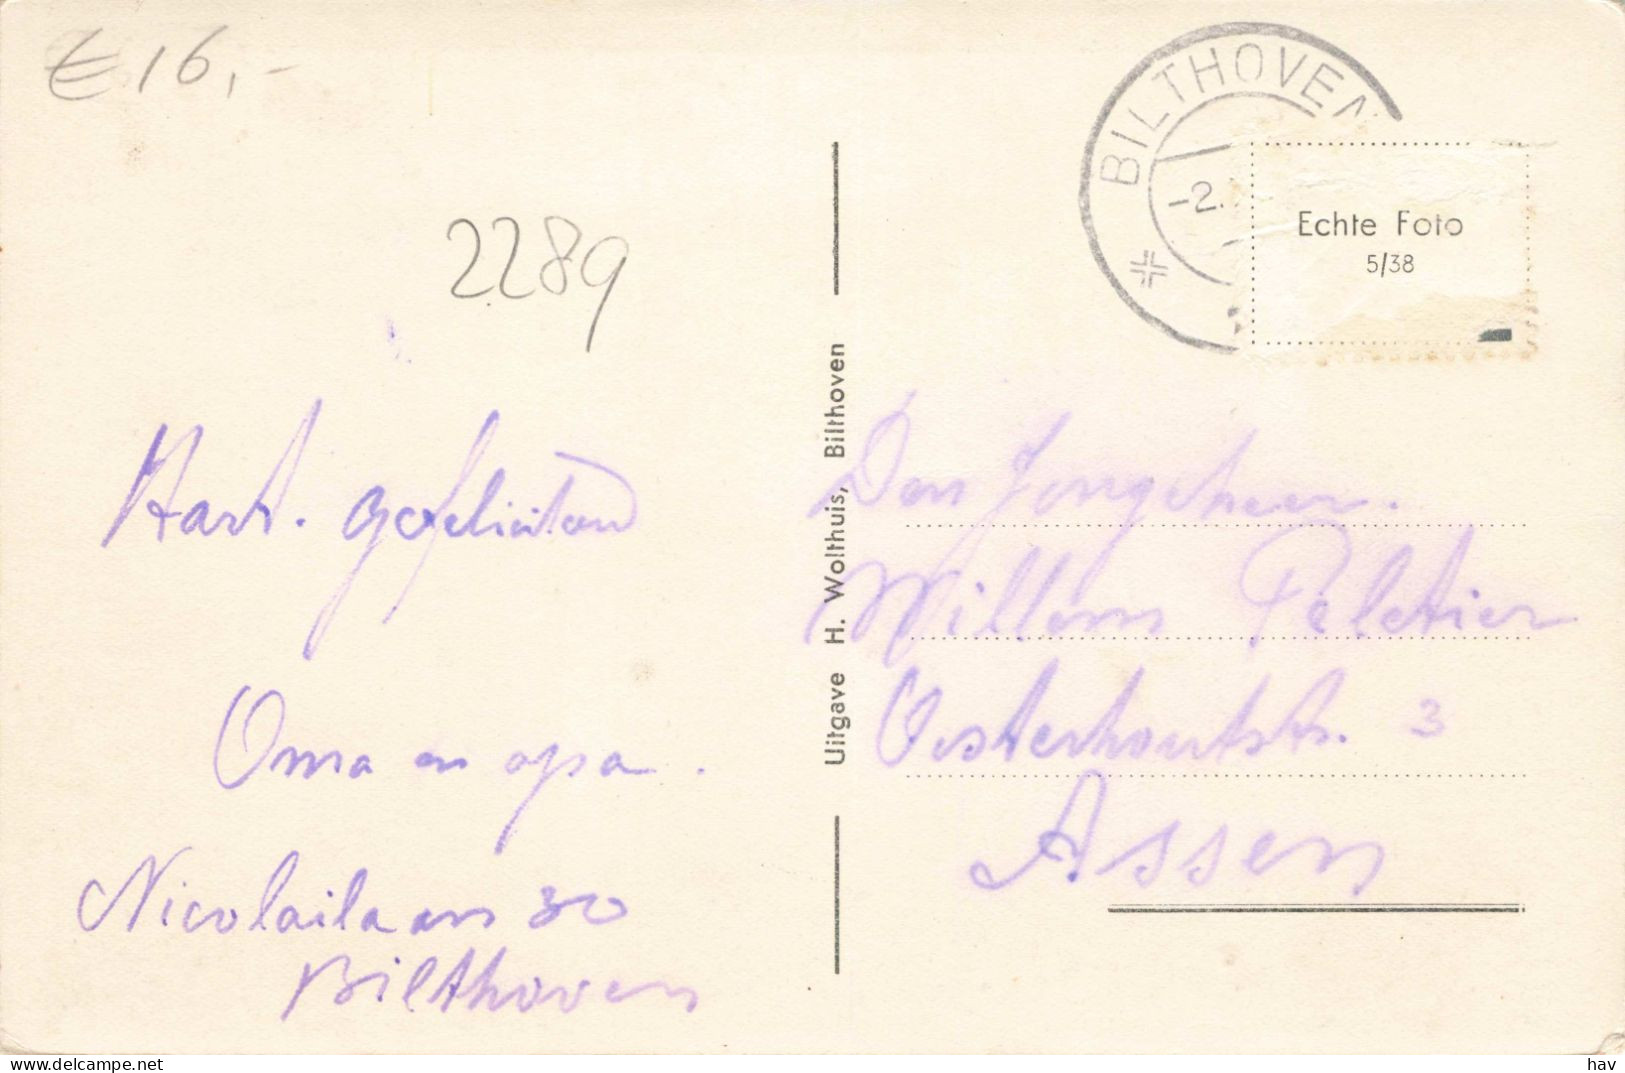 € 16,-
2289
BILTHOVEN
-2.
Echte Foto
5/38
Hart. gefeliciteerd
Oma en opa.
Nicolailaan 30
Bilthoven
Uitgave H. Wolthuis, Bilthoven
Den Jongeheer.
Willem Peletier
Oosterhoutstr. 3
Assen
www.delcampe.net
hav